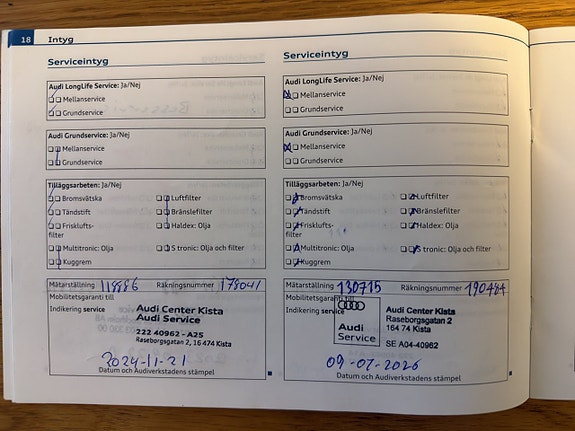 18 Intyg
Serviceintyg
Audi LongLife Service: Ja/Nej
Mellanservice
Grundservice
Audi Grundservice: Ja/Nej
Mellanservice
Grundservice
Tilläggsarbeten: Ja/Nej
Bromsvätska Luftfilter
Tändstift Bränslefilter
Frisklufts- Haldex: Olja
filter
Multitronic: Olja S tronic: Olja och filter
Kuggrem
Mätarställning 118886 Räkningsnummer 178041
Mobilitetsgaranti till
Indikering service
Audi Center Kista
Audi Service
222 40962 - A25
Raseborgsgatan 2, 16 474 Kista
2024-11-21
Datum och Audiverkstadens stämpel
Serviceintyg
Audi LongLife Service: Ja/Nej
Mellanservice
Grundservice
Audi Grundservice: Ja/Nej
Mellanservice
Grundservice
Tilläggsarbeten: Ja/Nej
Bromsvätska Luftfilter
Tändstift Bränslefilter
Frisklufts- Haldex: Olja
filter
Multitronic: Olja S tronic: Olja och filter
Kuggrem
Mätarställning 130715 Räkningsnummer 190484
Mobilitetsgaranti till
Indikering service
Audi
Service
Audi Center Kista
Raseborgsgatan 2
164 74 Kista
SE A04-40962
09-07-2026
Datum och Audiverkstadens stämpel